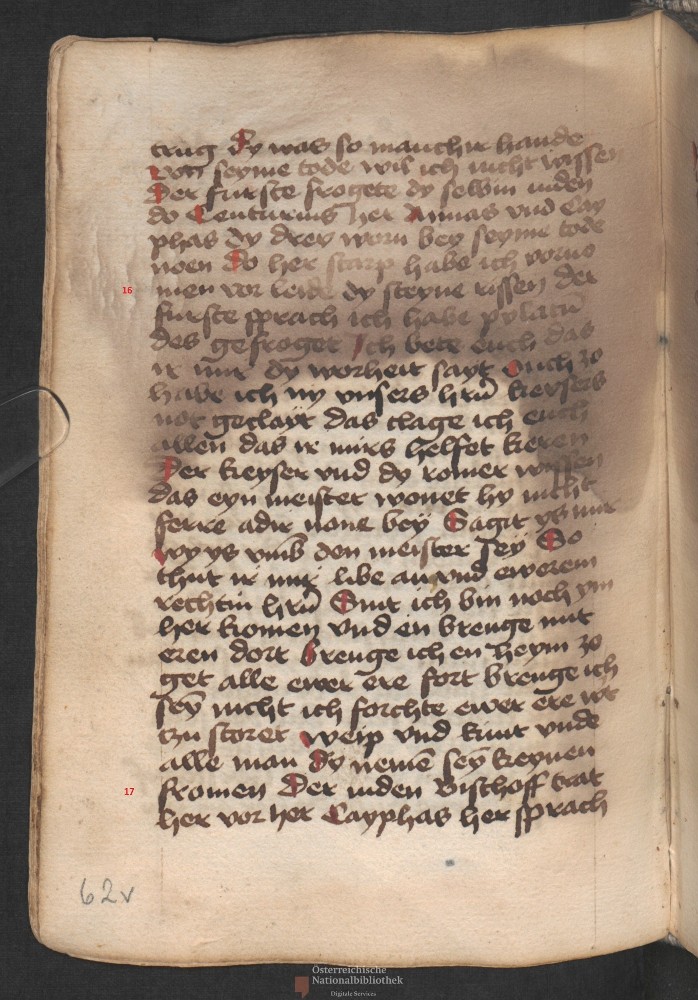 trug dy was so manchir hande
von seyme tode wil ich nicht wissen
Der furste frogete dy selbin iuden
do Centurius her Annas vnd Cay
phas dy drey worn bey seyme tode
noen do her starp habe ich vorno
16 men vor leide dy steyne rissen der
furste sprach ich habe pylatū
des gefroget Ich bete euch das
ir mir dy worheit sayt Ouch zo
habe ich ny vnsers hrn̄ keysers
not geclayt das clage ich euch
allen das ir mirs helfet keren
Der keyser vnd dy romer wissen
das eyn meister wonet hy nicht
ferre adir none bey Sagit ys mir
wy ys vmb den meister sey So
thut ir mir libe an vnd ewerem
rechtin hrn̄ Sint ich bin noch ym
her komen vnd en brenge mit
eren dort brenge ich en heym zo
get alle ewer ere fort brenge ich
sey nicht ich forchte ewer ere wt
tzu storet weip vnd kint vnde
alle man dy nemē sey keynen
17 fromen Der iuden Bischoff trat
her vor her Cayphas her sprach
62v
Österreichische
Nationalbibliothek
Digitale Services